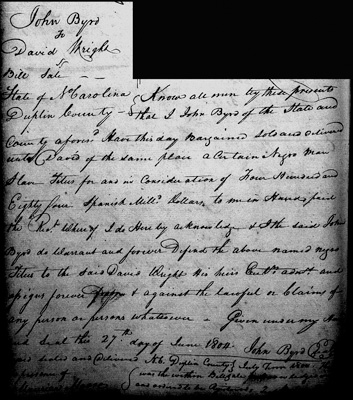 John Byrd
To
David Wright
Bill Sale
State of No Carolina } Know all men by these presents
Duplin County - that I John Byrd of the State and
County aforesd. Have this day Bargained Sold and delivered
unto David of the same place a Certain Negro man
Slave Titus for and in Consideration of Four Hundred and
Eighty four Spanish Milld. Dollars to me in Hand paid
the Rect. Whereof I do Hereby acknowledge & I the said John
Byrd do Warrant and forever Defend the above named negro
Titus to the said David Wright His heirs Exrs. admrs. and
assigns forever & against the lawful Claims of
any person or persons whatsoever - Given under my
and Seal this 27th day of June 1804. John Byrd
sealed and delivered No. C. Duplin County } July Term
presence of was the within Bill
and ordered to be